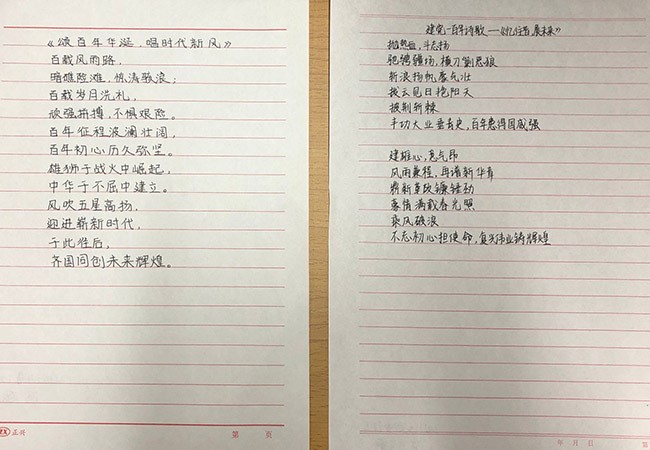 《颂百年华诞，唱时代新风》
百载风雨路，
暗礁险滩，惊涛骇浪；
百载岁月洗礼，
顽强拼搏，不惧艰险。
百年征程波澜壮阔，
百年初心历久弥坚。
雄狮于战火中崛起，
中华于不屈中建立。
风吹五星高扬，
迎进崭新时代，
于此往后，
齐国同创未来辉煌。
正兴
第 页
建党一百年诗歌——《忆往昔，展未来》
抛热血，斗志扬
驰骋疆场，横刀劐恶狼
斩浪扬帆唇气壮
拨云见日艳阳天
披荆斩棘
丰功大业垂青史，百年惠得国威强
建雄心，意气昂
风雨兼程，再谱新华章
崭新革政镰锤劲
豪情满载春光照
乘风破浪
不忘初心担使命，复兴伟业铸辉煌
年 月 日
第